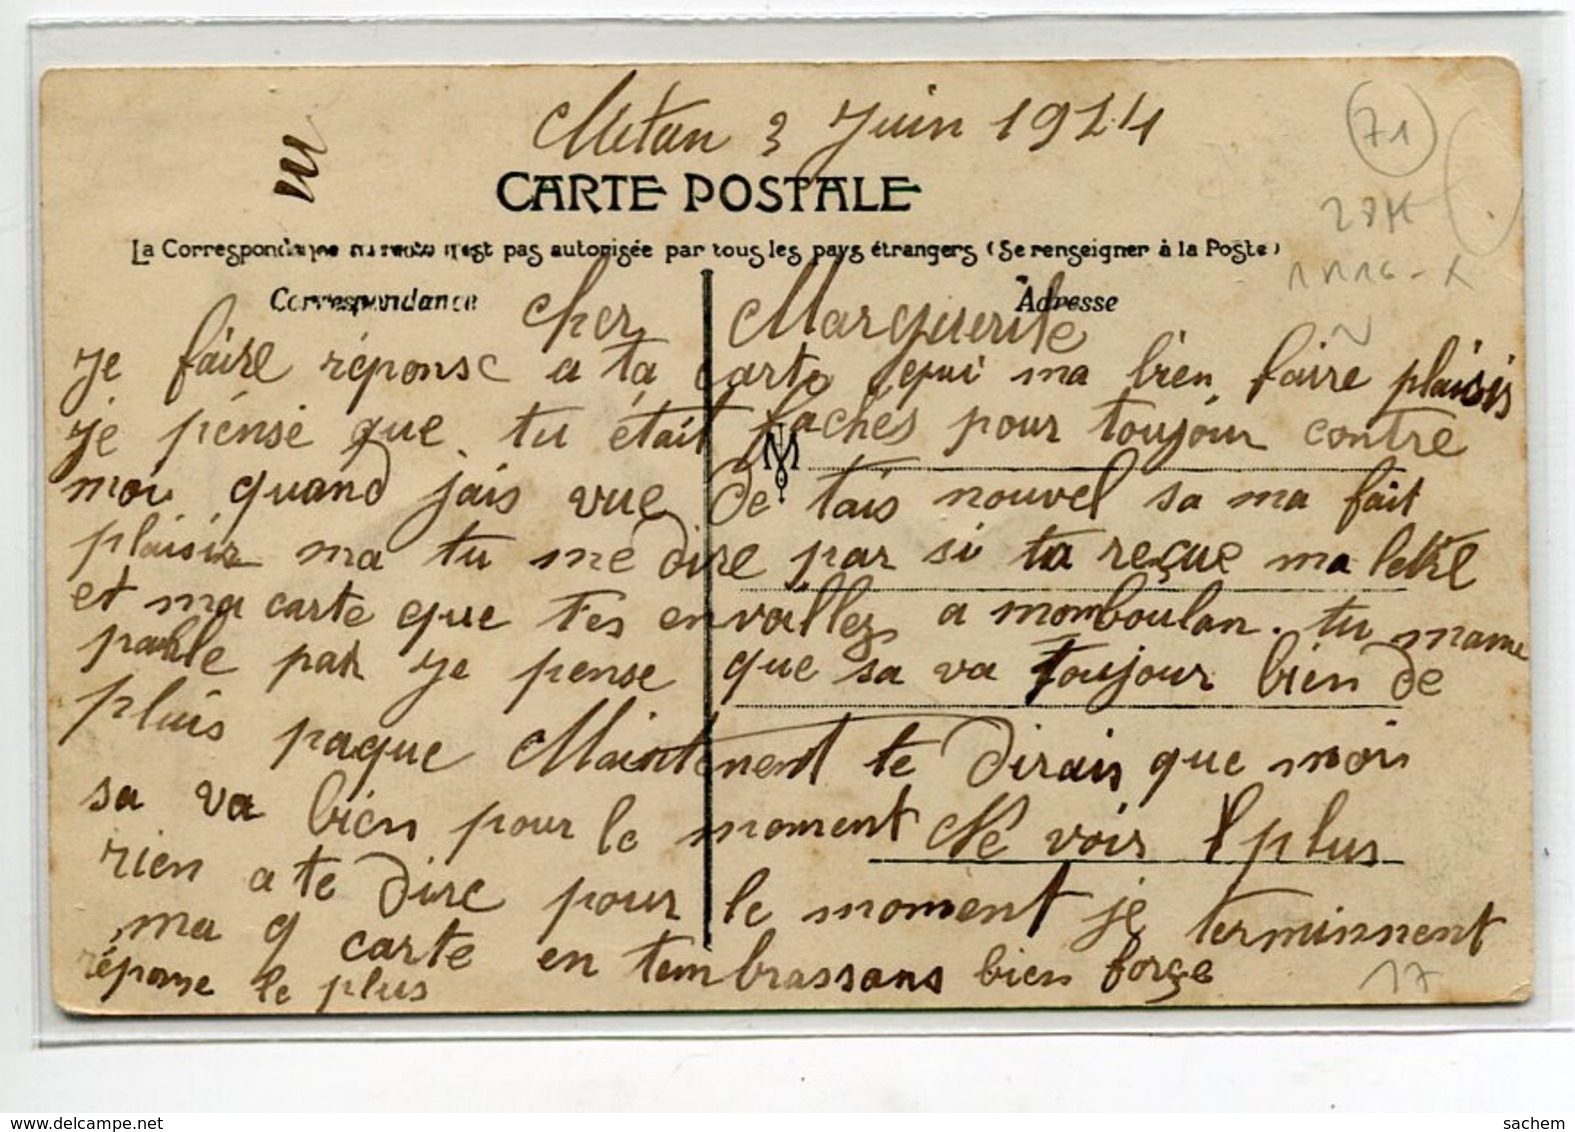 Metan 3 Juin 1914
71
CARTE POSTALE
La Correspondance au recto n'est pas autorisée par tous les pays étrangers (Se renseigner à la Poste)
Correspondance
Adresse
cher Marguerite
je faire réponse a ta carte qui ma bien faire plaisir
je pense que tu était fachés pour toujour contre
moi quand jais vue de tais nouvel sa ma fait
plaisir ma tu me dire par si ta reçue ma lettre
et ma carte que tes envoillez a momboulan. tu mame
parle par je pense que sa va toujour bien de
pluis paque Maintenent te dirais que moi
sa va bien pour le moment Né vois plus
rien a te dire pour le moment je terminnent
ma carte en tembrassans bien forçe
réponse le plus
17
www.delcampe.net
sachem